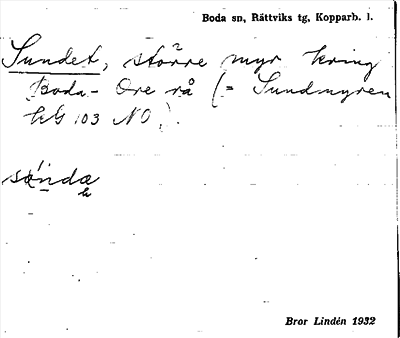 Boda sn, Rättviks tg, Kopparb. l.
Sundet, större myr kring
Boda - Ore rå (= Sundmyren
kG 103 NO).
Bror Lindén 1932